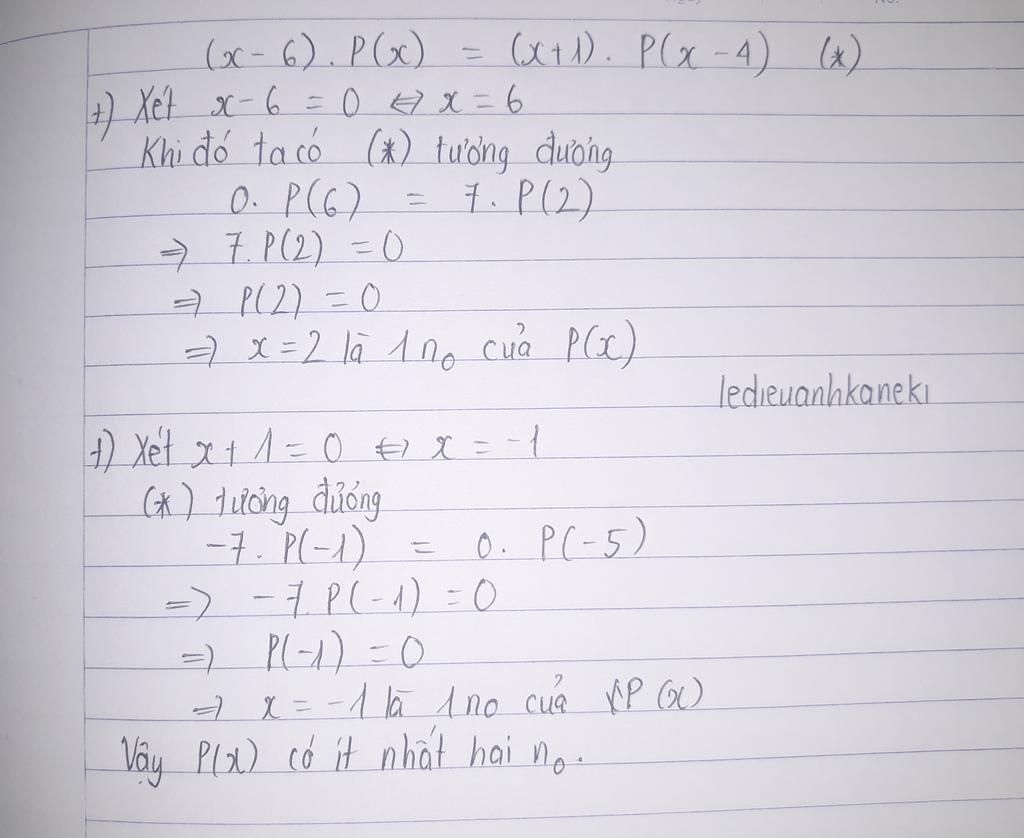 (x-6). P(x) = (x+1). P(x-4) (*)
+) Xét x-6 = 0 ⇔ x = 6
Khi đó ta có (*) tương đương
0. P(6) = 7. P(2)
⇒ 7.P(2) = 0
⇒ P(2) = 0
⇒ x=2 là 1 n₀ của P(x)
ledieuanhkaneki
+) Xét x+1=0 ⇔ x = -1
(*) tương đương
-7. P(-1) = 0. P(-5)
⇒ -7.P(-1) = 0
⇒ P(-1) = 0
⇒ x = -1 là 1 n₀ của P(x)
Vậy P(x) có ít nhất hai n₀.